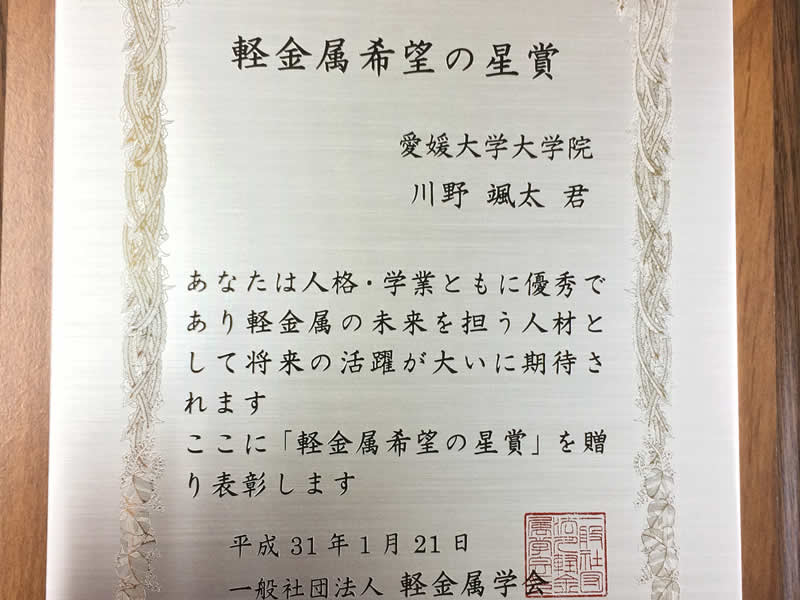 軽金属希望の星賞
愛媛大学大学院
川野 颯太 君
あなたは人格・学業ともに優秀で
あり軽金属の未来を担う人材と
して将来の活躍が大いに期待さ
れます
ここに「軽金属希望の星賞」を贈
り表彰します
平成31年1月21日
一般社団法人 軽金属学会